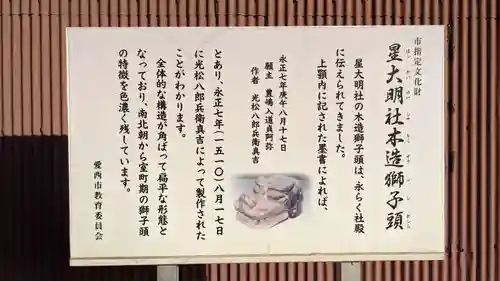 市指定文化財
星大明社木造獅子頭
星大明社の木造獅子頭は、永らく社殿
に伝えられてきました。
上顎内に記された墨書によれば、
永正七年庚午八月十七日
願主 豊嶋入道貞阿弥
作者 光松八郎兵衛真吉
とあり、永正七年(一五一〇)八月一七日
に光松八郎兵衛真吉によって製作された
ことがわかります。
全体的な構造が角ばって扁平な形態と
なっており、南北朝から室町期の獅子頭
の特徴を色濃く残しています。
愛西市教育委員会